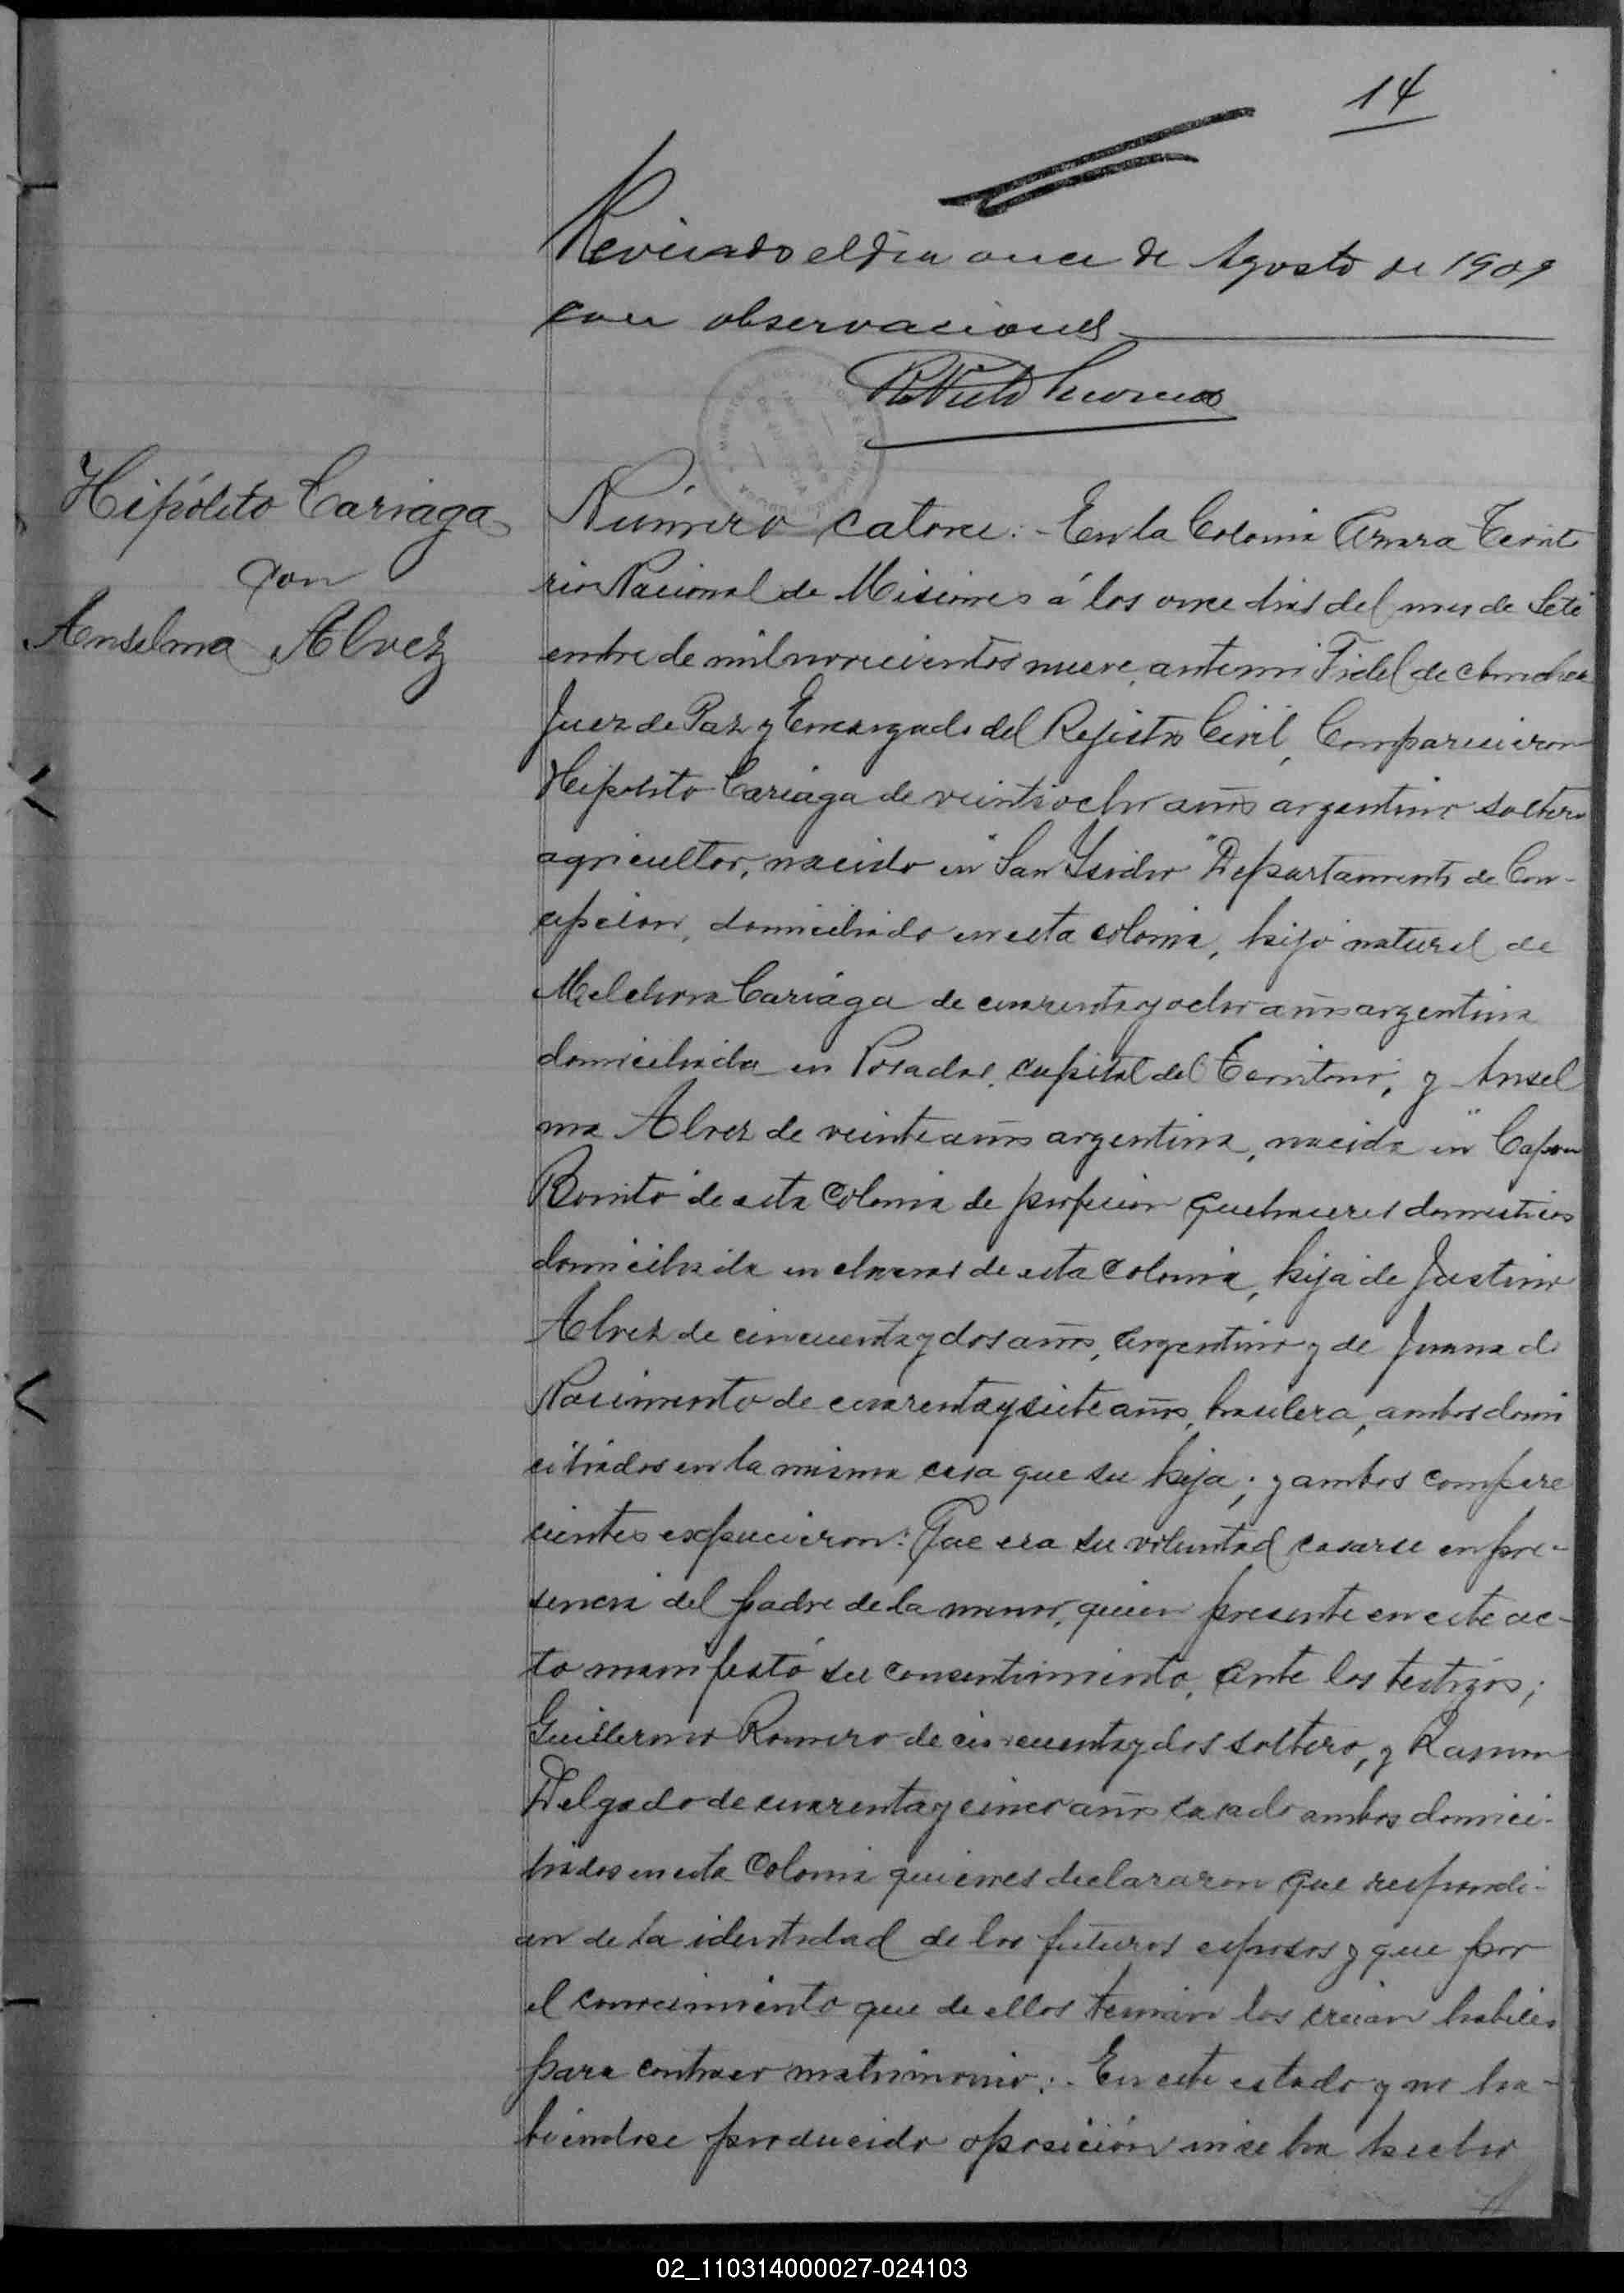 14
Revisado el dia once de Agosto de 1909
con observaciones
Hipólito Cariaga
con
Anselma Alvez
Número catorce:- En la Colonia Azara Territo
rio Nacional de Misiones á los once dias del mes de Seti
embre de mil novecientos nueve, ante mi Fidel de
Juez de Paz y Encargado del Rejistro Civil, Comparecieron
Hipolito Cariaga de veintiocho años argentino soltero
agricultor, nacido en "San Ysidro" Departamento de Con-
cepcion, domiciliado en esta colonia, hijo natural de
Melchora Cariaga de cuarenta y ocho años argentina
domiciliada en Posadas, capital del Territorio, y Ansel
ma Alvez de veinte años argentina, nacida en "Capon
Bonito" de esta Colonia de profecion quehaceres domesticos
domiciliada en chacras de esta Colonia, hija de Justino
Alvez de cincuenta y dos años, argentino y de Juana do
Nacimento de cuarenta y siete años, brasilera, ambos domi
ciliados en la misma casa que su hija; y ambos compare
cientes expucieron: Que era su voluntad casarse en pre-
sencia del padre de la menor, quien presente en este ac-
to manifestó su consentimiento, ante los testigos;
Guillermo Romero de cincuenta y dos soltero, y Ramon
Delgado de cuarenta y cinco años casado ambos domici-
liados en esta Colonia quienes declararon que respondi-
an de la identidad de los futuros esposos y que por
el conocimiento que de ellos tenian los creian habiles
para contraer matrimonio:- En este estado y no ha-
biendose producido oposición ni se ha hecho
02_110314000027-024103